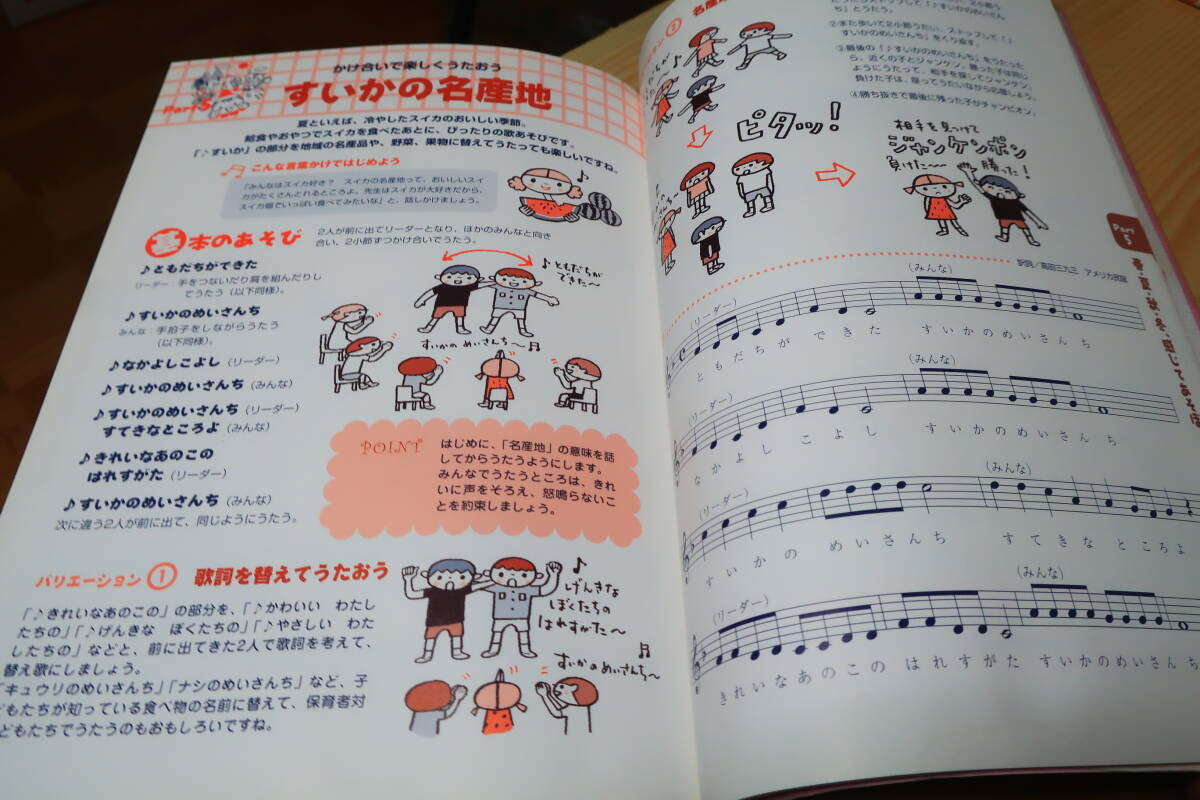 Part 5
かけ合いで楽しくうたおう
すいかの名産地
夏といえば、冷やしたスイカのおいしい季節。
給食やおやつでスイカを食べたあとに、ぴったりの歌あそびです。
「♪すいか」の部分を地域の名産品や、野菜、果物に替えてうたっても楽しいですね。
こんな言葉かけではじめよう
「みんなはスイカ好き？ スイカの名産地って、おいしいスイ
カがたくさんとれるところよ。先生はスイカが大好きだから、
スイカ畑でいっぱい食べてみたいな」と、話しかけましょう。
基本のあそび
2人が前に出てリーダーとなり、ほかのみんなと向き
合い、2小節ずつかけ合いでうたう。
♪ともだちができた
リーダー：手をつないだり肩を組んだりし
てうたう（以下同様）。
♪すいかのめいさんち
みんな：手拍子をしながらうたう
（以下同様）。
♪なかよしこよし（リーダー）
♪すいかのめいさんち（みんな）
♪すいかのめいさんち（リーダー）
すてきなところよ（みんな）
♪きれいなあのこの
はれすがた（リーダー）
♪すいかのめいさんち（みんな）
次に違う2人が前に出て、同じようにうたう。
♪ともだちが
できた〜
すいかの めいさんち〜♬
POINT
はじめに、「名産地」の意味を話
してからうたうようにします。
みんなでうたうところは、きれ
いに声をそろえ、怒鳴らないこ
とを約束しましょう。
バリエーション① 歌詞を替えてうたおう
「♪きれいなあのこの」の部分を、「♪かわいい わたし
たちの」「♪げんきな ぼくたちの」「♪やさしい わた
したちの」などと、前に出てきた2人で歌詞を考えて、
替え歌にしましょう。
「キュウリのめいさんち」「ナシのめいさんち」など、子
どもたちが知っている食べ物の名前に替えて、保育者対
どもたちでうたうのもおもしろいですね。
♪
げんきな
ぼくたちの
はれすがた〜
♬
すいか のめいさんち〜
名産
2小節う
ストップして「♪すいかのめいさん
ち」とうたう。
②また歩いて2小節うたい、ストップして「♪
すいかのめいさんち」をくり返す。
③最後の「♪すいかのめいさんち」をうたった
ら、近くの子とジャンケン。勝った子は同じ
ようにうたって、相手を探してジャンケン。
負けた子は、座ってうたいながら応援しよう。
④勝ち抜きで最後に残った子がチャンピオン。
ピタッ！
相手を見つけて
ジャンケンポン
負けた〜
勝った！
Part
5
春・夏・秋・冬・感じてあそぼ
訳詞／高田三九三 アメリカ民謡
（リーダー）
（みんな）
ともだちが できた すいかのめいさんち
（リーダー）
（みんな）
なかよし こよし すいかのめいさんち
（みんな）
（リーダー）
すいかの めいさんち すてきな ところよ
（みんな）
（リーダー）
きれいなあのこの はれすがた すいかのめいさんち